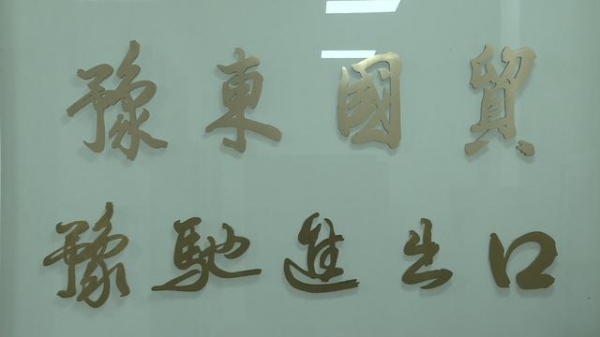 豫東國貿
豫馳進出口